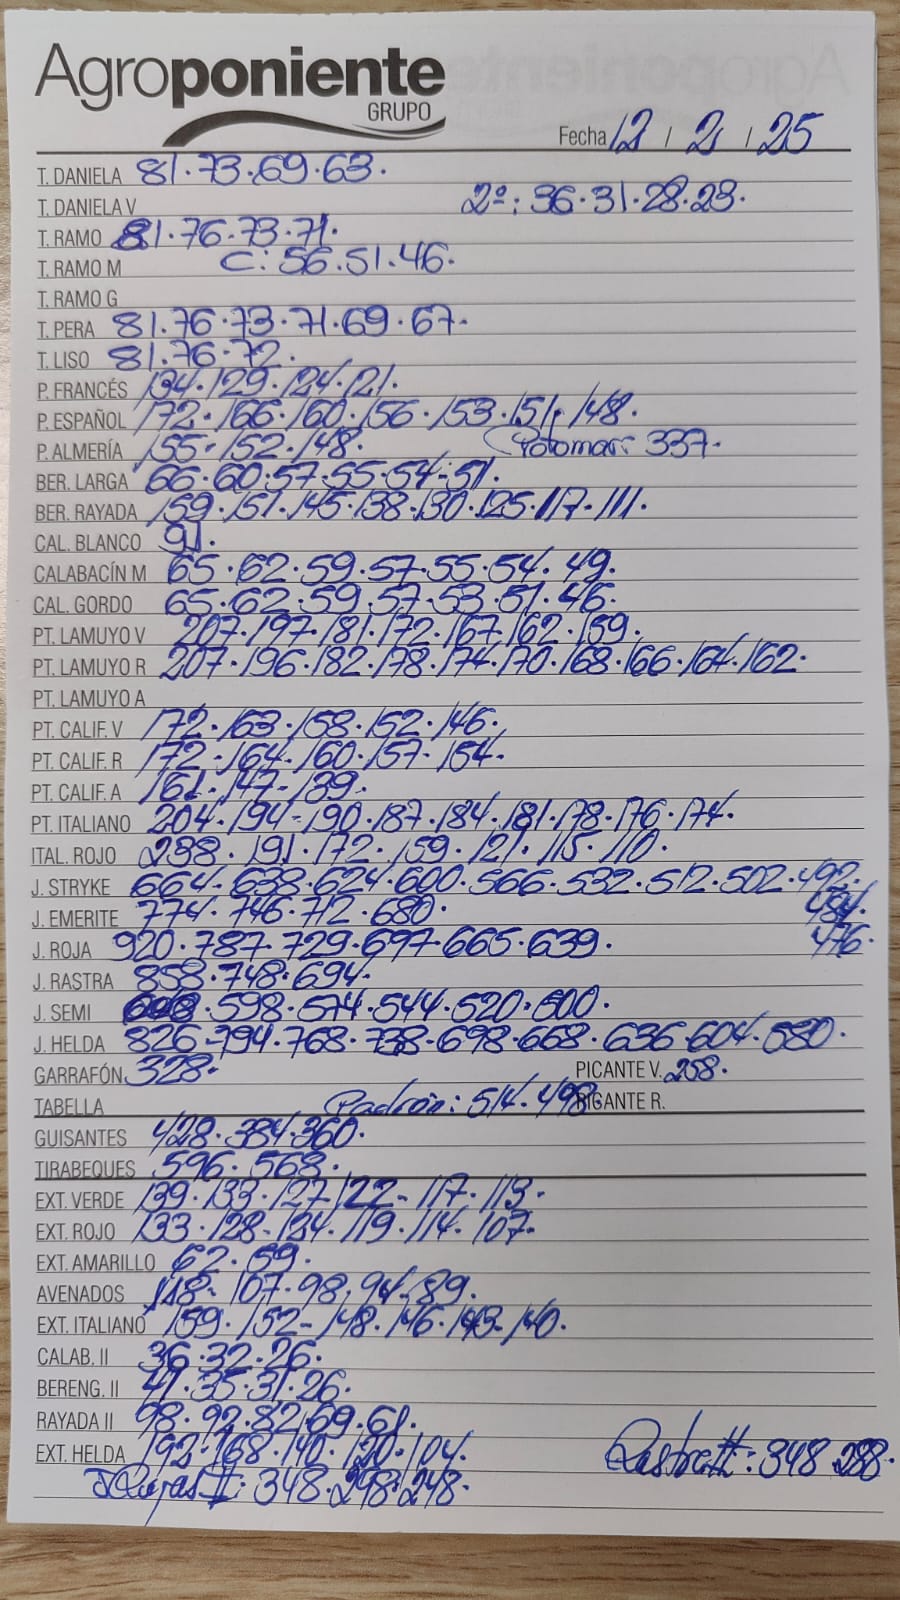 Agroponiente
GRUPO
Fecha 12 / 2 / 25
T. DANIELA 81.73.69.63.
T. DANIELA V 2º: 36.31.28.23.
T. RAMO 81.76.73.71.
T. RAMO M C: 56.51.46.
T. RAMO G
T. PERA 81.76.73.71.69.67.
T. LISO 81.76.72.
P. FRANCÉS 134.129.124.121.
P. ESPAÑOL 172.166.160.156.153.151.148.
P. ALMERÍA 155.152.148. 337.
BER. LARGA 66.60.57.55.54.51.
BER. RAYADA 159.151.145.138.130.125.117.111.
CAL. BLANCO 91.
CALABACÍN M 65.62.59.57.55.54.49.
CAL. GORDO 65.62.59.57.53.51.46.
PT. LAMUYO V 207.197.181.172.167.162.159.
PT. LAMUYO R 207.196.182.178.174.170.168.166.164.162.
PT. LAMUYO A
PT. CALIF. V 172.163.158.152.146.
PT. CALIF. R 172.164.160.157.154.
PT. CALIF. A 161.147.139.
PT. ITALIANO 204.194.190.187.184.181.178.176.174.
ITAL. ROJO 238.191.172.159.121.115.110.
J. STRYKE 664.638.624.600.566.532.512.502.492.
J. EMERITE 774.746.712.680. 484.
J. ROJA 920.787.729.697.665.639. 476.
J. RASTRA 858.748.694.
J. SEMI .598.574.544.520.500.
J. HELDA 826.794.768.738.698.668.636.604.580.
GARRAFÓN 328. PICANTE V. 258.
TABELLA Padrón: 514.498 PICANTE R.
GUISANTES 428.384.360.
TIRABEQUES 596.568.
EXT. VERDE 139.133.127.122.117.113.
EXT. ROJO 133.128.124.119.114.107.
EXT. AMARILLO 62.59.
AVENADOS 118.107.98.94.89.
EXT. ITALIANO 159.152.148.146.143.140.
CALAB. II 36.32.26.
BERENG. II 41.35.31.26.
RAYADA II 98.92.82.69.61.
EXT. HELDA 192.168.140.120.104. Rastra II: 348.288.
J Rojas II: 348.298.248.